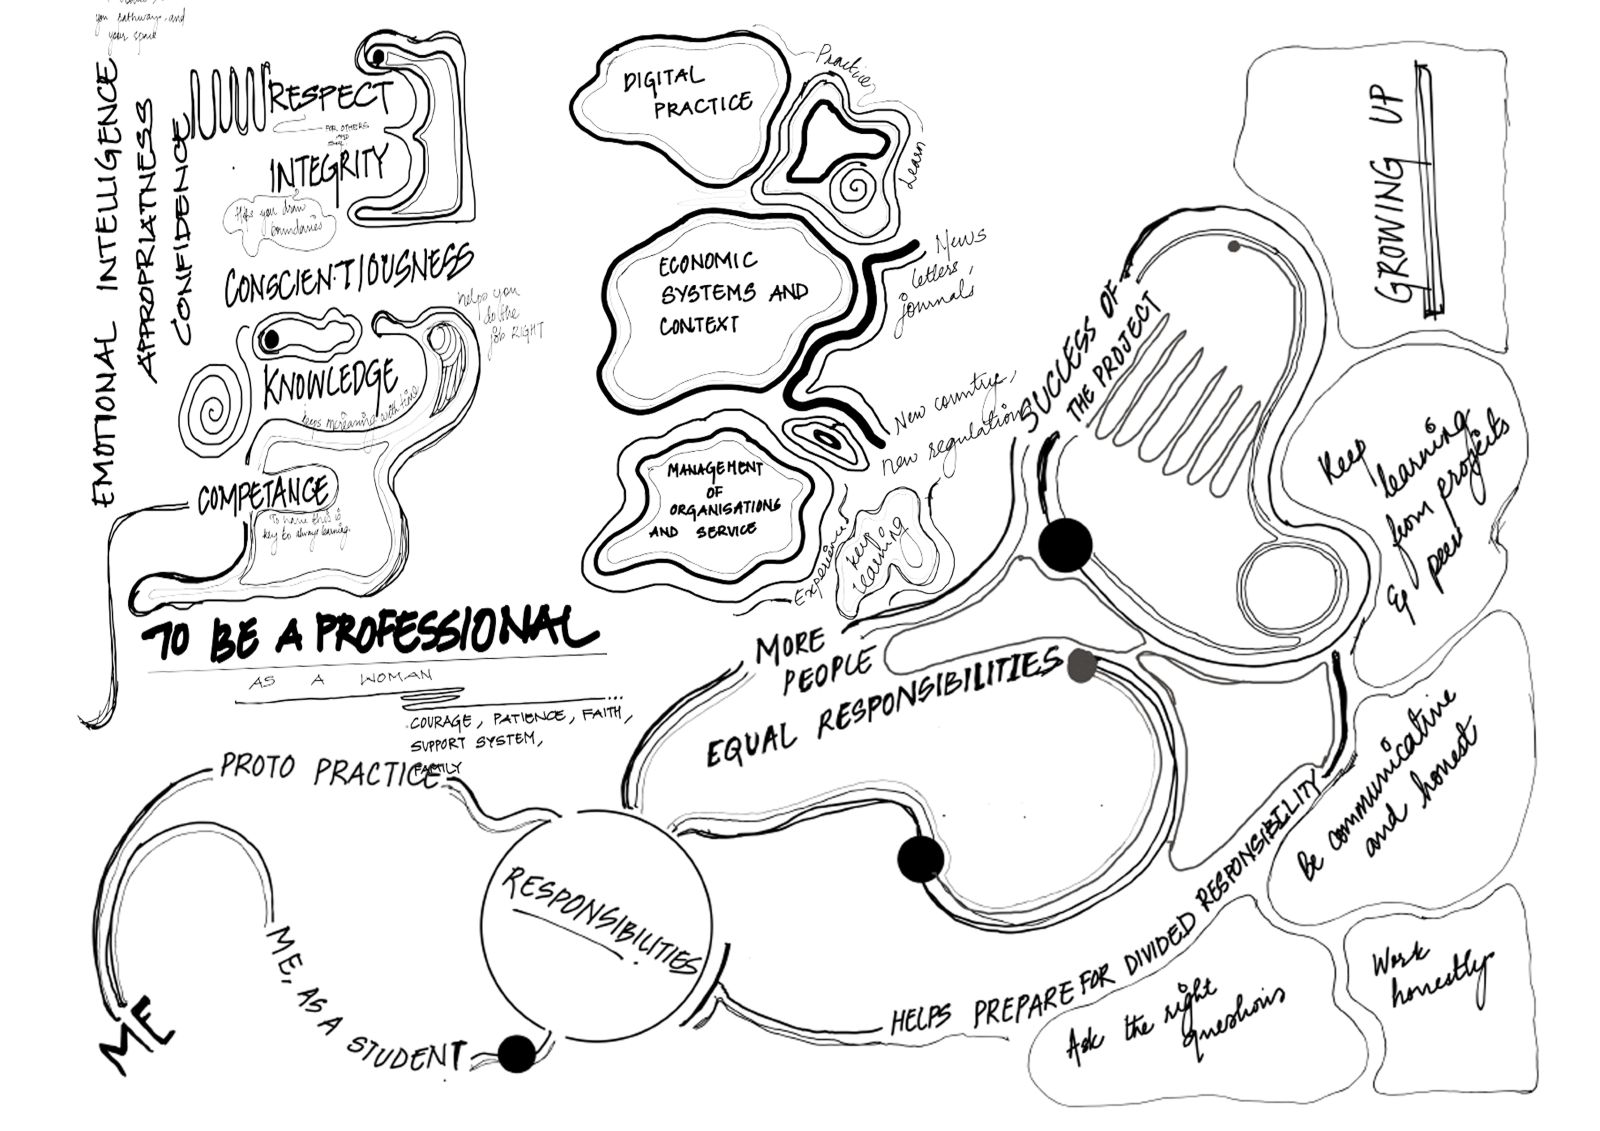 you pathways and
your space
EMOTIONAL INTELLIGENCE
APPROPRIATNESS
CONFIDENCE
RESPECT
FOR OTHERS
AND
SELF.
INTEGRITY
Helps you draw
boundaries
CONSCIENTIOUSNESS
helps you
do the
job RIGHT
KNOWLEDGE
keeps increasing with time
COMPETANCE
To have this is
key to always learning.
TO BE A PROFESSIONAL
AS A WOMAN
COURAGE, PATIENCE, FAITH,
SUPPORT SYSTEM,
FAMILY
DIGITAL
PRACTICE
Practice
Learn
ECONOMIC
SYSTEMS AND
CONTEXT
News
letters,
journals
New country,
new regulations
MANAGEMENT
OF
ORGANISATIONS
AND SERVICE
Experience
keep
learning
SUCCESS OF
THE PROJECT
GROWING UP
Keep
learning
from projects
& peers
MORE
PEOPLE
EQUAL RESPONSIBILITIES
Be communicative
and honest
PROTO PRACTICE
RESPONSIBILITIES
ME
ME, AS A STUDENT
HELPS PREPARE FOR DIVIDED RESPONSIBILITY
Ask the right
questions
Work
honestly